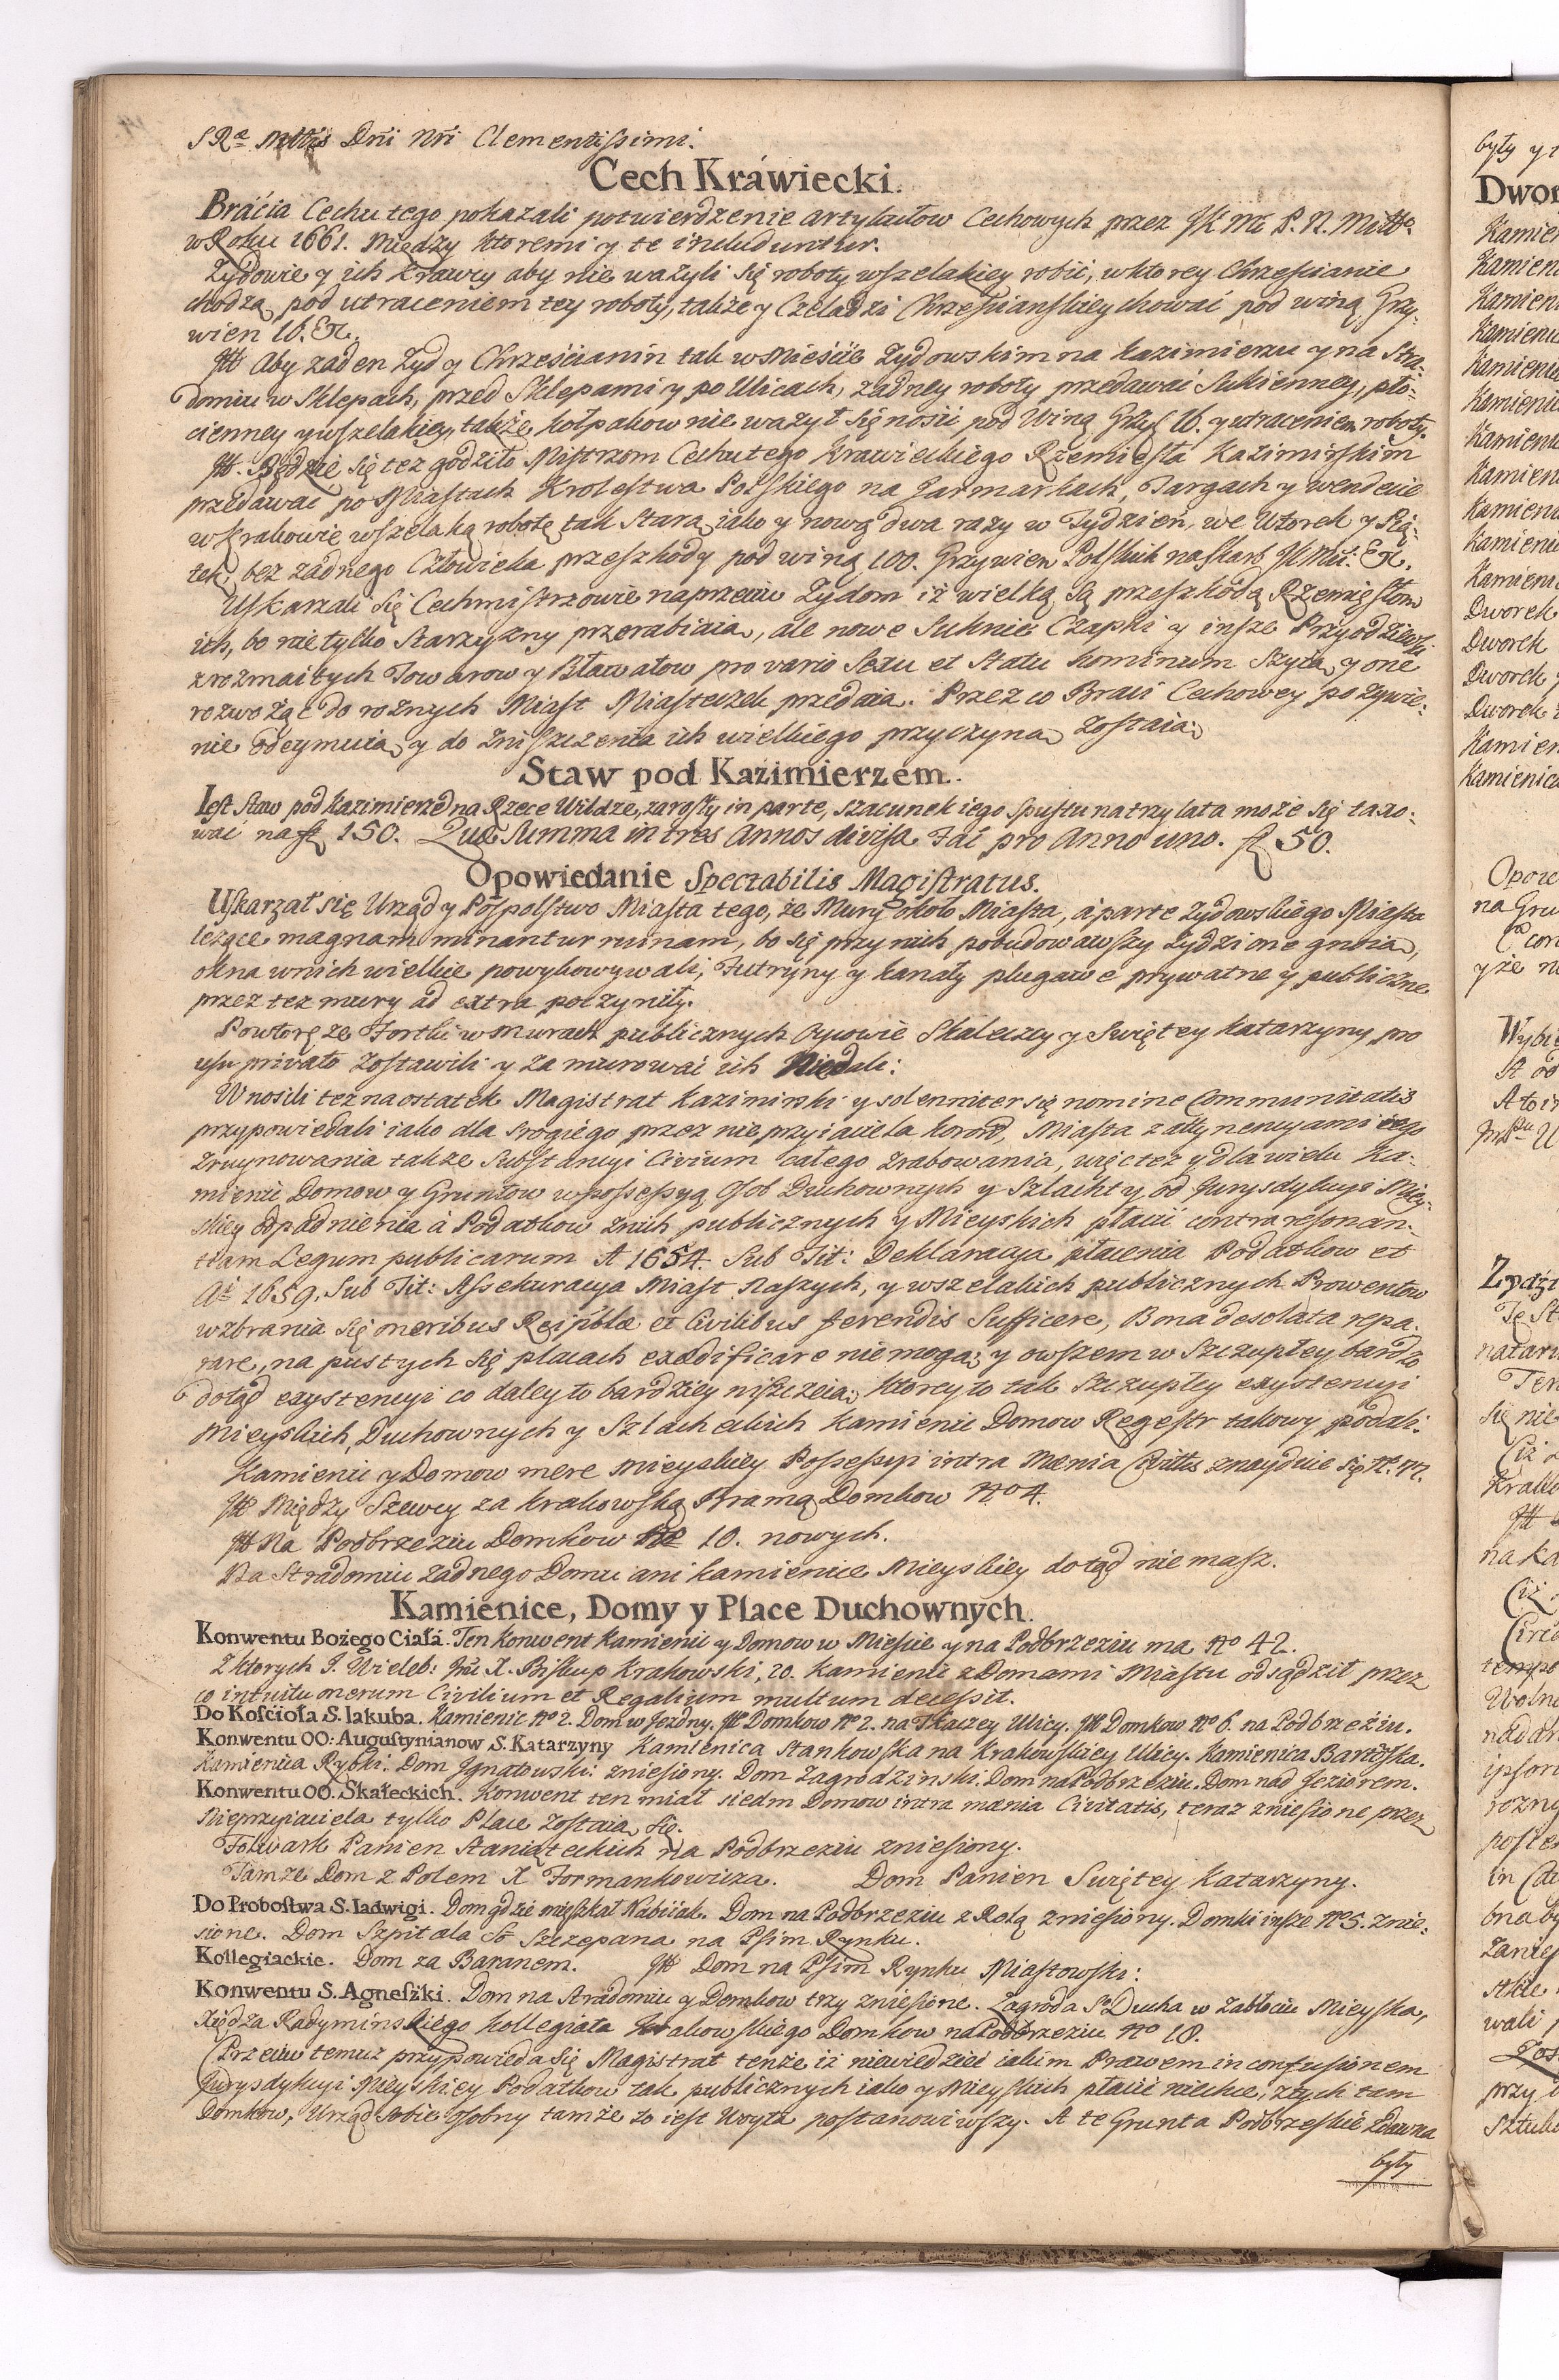 S R Mttis Dni Nri Clementissimi.
Cech Kráwiecki.
Bráćia Cechu tego pokazali potwierdzenie artykułow Cechowych przez JK Mć P. N. Mttº
w Roku 1661. Między ktoremi y te includuntur.
Zydowie y ich Krawcy aby nie ważyli się roboty wszelakiey robić, w ktorey Chrześcianie
chodzą, pod utraceniem tey roboty, także y Czeladzi Chrześcianskiey chować pod winą Grzy-
wien 16. Etc.
Itt Aby zaden Zyd y Chrześcianin tak w Mieście Zydowskim na Kazimierzu y na Stra-
domiu w Sklepach, przed Sklepami y po Ulicach, zadney roboty przedawać Sukienney, płó-
cienney y wszelakiey, także kołpakow nie ważył się nosić pod Winą Grzy. 16. y utraceniem roboty.
Itt. Będzie się tez godziło Mistrzom Cechu tego Krawieckiego Rzemięsła Kazimirskim
przedawać po Miastach Krolestwa Polskiego na Jarmarkach, Targach y wendecie
w Krakowie wszelaką robotę tak starą iako y nową dwa razy w Tydzień, we Wtorek y Pią-
tek, bez zadnego Człowieka przeszkody pod winą 100. Grzywien Polskich na Skarb JK Mći. Etc.
Uskarzali się Cechmistrzowie naprzeciw Zydom iż wielką są przeszkodą Rzemięsłom
ich, bo nie tylko Starzyzny przerabiaią, ale nowe Suknie Czapki y insze Przyodziewki
z rozmaitych Towarow y Bławatow pro vario Sexu et Statu hominum Szyią, y one
rozwożąc do roznych Miast Miasteczek przedaią. Przez co Braci Cechowey pożywie-
nie odeymuią, y do zniszczenia ich wielkiego przyczyną zostaią.
Staw pod Kazimierzem.
Iest Staw pod Kazimierzẽ na Rzece Wildze, zarosły in parte, szacunek iego Spustu na trzy lata może się taxo-
wać na fl 150. Quæ Summa in tres Annos divisa Fāt pro Anno uno. fl 50.
Opowiedanie Spectabilis Magistratus.
Uskarzał się Urząd y Pospolstwo Miasta tego, że Mury około Miasta, à parte Zydowskiego Miasta
leżące magnam minantur ruinam, bo się przy nich pobudowawszy Zydzi one gnoią,
okna w nich wielkie powykowywali, Futryny y kanały plugawe prywatne y publiczne
przez tez mury ad extra poczyniły.
Powtorę ze Fortki w Murach publicznych Oycowie Skałeczcy y Swiętey Katarzyny pro
usu privato zostawili y zamurować ich Niedali:
Wnosili tez na ostatek Magistrat Kazimirski y solenniter się nomine Communitatis
przypowiedali iako dla srogiego przez nieprzyiaciela Korod, Miasta z attynencyami iego
zruynowania takze Substancyi Civium całego zrabowania, więc tez y dla wielu Ka-
mienic Domow y Gruntow w possessyą Osob Duchownych y Szlachty od Jurysdykcyi Miey-
skiey odpadnienia à Podatkow znich publicznych y Mieyskich płacić contra resonan-
tiam Legum publicarum A 1654. Sub Tit: Deklaracya płacenia Podatkow et
Aº 1659. Sub Tit: Assekuracya Miast Naszych, y wszelakich publicznych Prowentow
wzbrania się oneribus Reipblæ et Civilibus ferendis Sufficere, Bona desolata repa-
rare, na pustych się placach exædificare niemogą; y owszem w Szczupłey bardzo
dotąd exystencyi co daley to bardziey niszczeią, ktorey to tak Szczupłey exystencyi
Mieyskich, Duchownych y Szlacheckich Kamienic Domow Regestr takowy podali.
Kamienic y Domow mere Mieyskiey Possessyi intra Mænia Cvittis znayduie się Nº 77.
Itt Między Szewcy za Krakowską Bramą Domkow Nº 4.
Itt Na Podbrzeziu Domkow Nº 10. nowych.
Na Stradomiu zadnego Domu ani Kamienice Mieyskiey dotąd nie masz.
Kamienice, Domy y Place Duchownych.
Konwentu Bożego Ciałá. Ten Konwent Kamienic y Domow w Mieście y na Podbrzeziu ma Nº 42.
Z ktorych J. Wieleb: Jmć X. Biskup Krakowski, 20. Kamienic z Domami Miastu odsądził przez
co intuitu onerum Civilium et Regalium multum decessit.
Do Kościoła S. Iakuba. Kamienic Nº 2. Dom w Jezdny. Itt Domkow Nº 2. na Tkaczey Ulicy. Itt Domkow Nº 6. na Podbrzeźiu.
Konwentu OO: Augustynianow S. Katarzyny Kamienica Stankowska na Krakowskiey Ulicy. Kamienica Bartoska.
Kamienica Rybki. Dom Jgnatowski: zniesiony. Dom Zagrodzinski. Dom na Podbrzeziu. Dom nad Jeziorem.
Konwentu OO. Skałeckich. Konwent ten miał siedm Domow intra mænia Civitatis, teraz zniesione przez
Nieprzyiaciela tylko Place zostaią się.
Folwark Panien Staniąteckich na Podbrzeziu zniesiony.
Tamze Dom z Polem X Formankowicza. Dom Panien Swiętey Katarzyny.
Do Probostwa S. Iadwigi. Dom gdzie mięszkał Kabićiak. Dom na Podbrzeziu z Rolą zniesiony. Domki insze Nº 5. znie-
sione. Dom Szpitala Sº Szczepana na Psim Rynku.
Kollegiackie. Dom za Baranem. Itt Dom na Psim Rynku Miastowski:
Konwentu S. Agneszki. Dom na Stradomiu y Domkow trzy zniesione. Zagroda Sº Ducha w Zabłociu Mieyska,
Xiędza Radymińskiego Kollegiata Krakowskiego Domkow na Podbrzeziu Nº 18.
Przeciw temuz przypowieda się Magistrat tenże iż niewiedzieć iakim Prawem in confusionem
Jurysdykcyi Mieyskiey Podatkow tak publicznych iako y Mieyskich płacić niechce, z tych tam
Domkow, Urząd sobie osobny tamże to iest Woyta postanowiwszy. A te Grunta Podbrzeskie zdawna
były